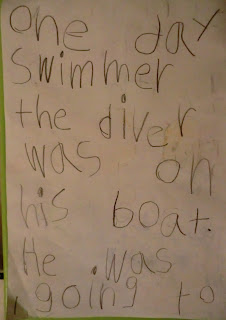 one day
swimmer
the diver
was on
his boat.
He was
going to